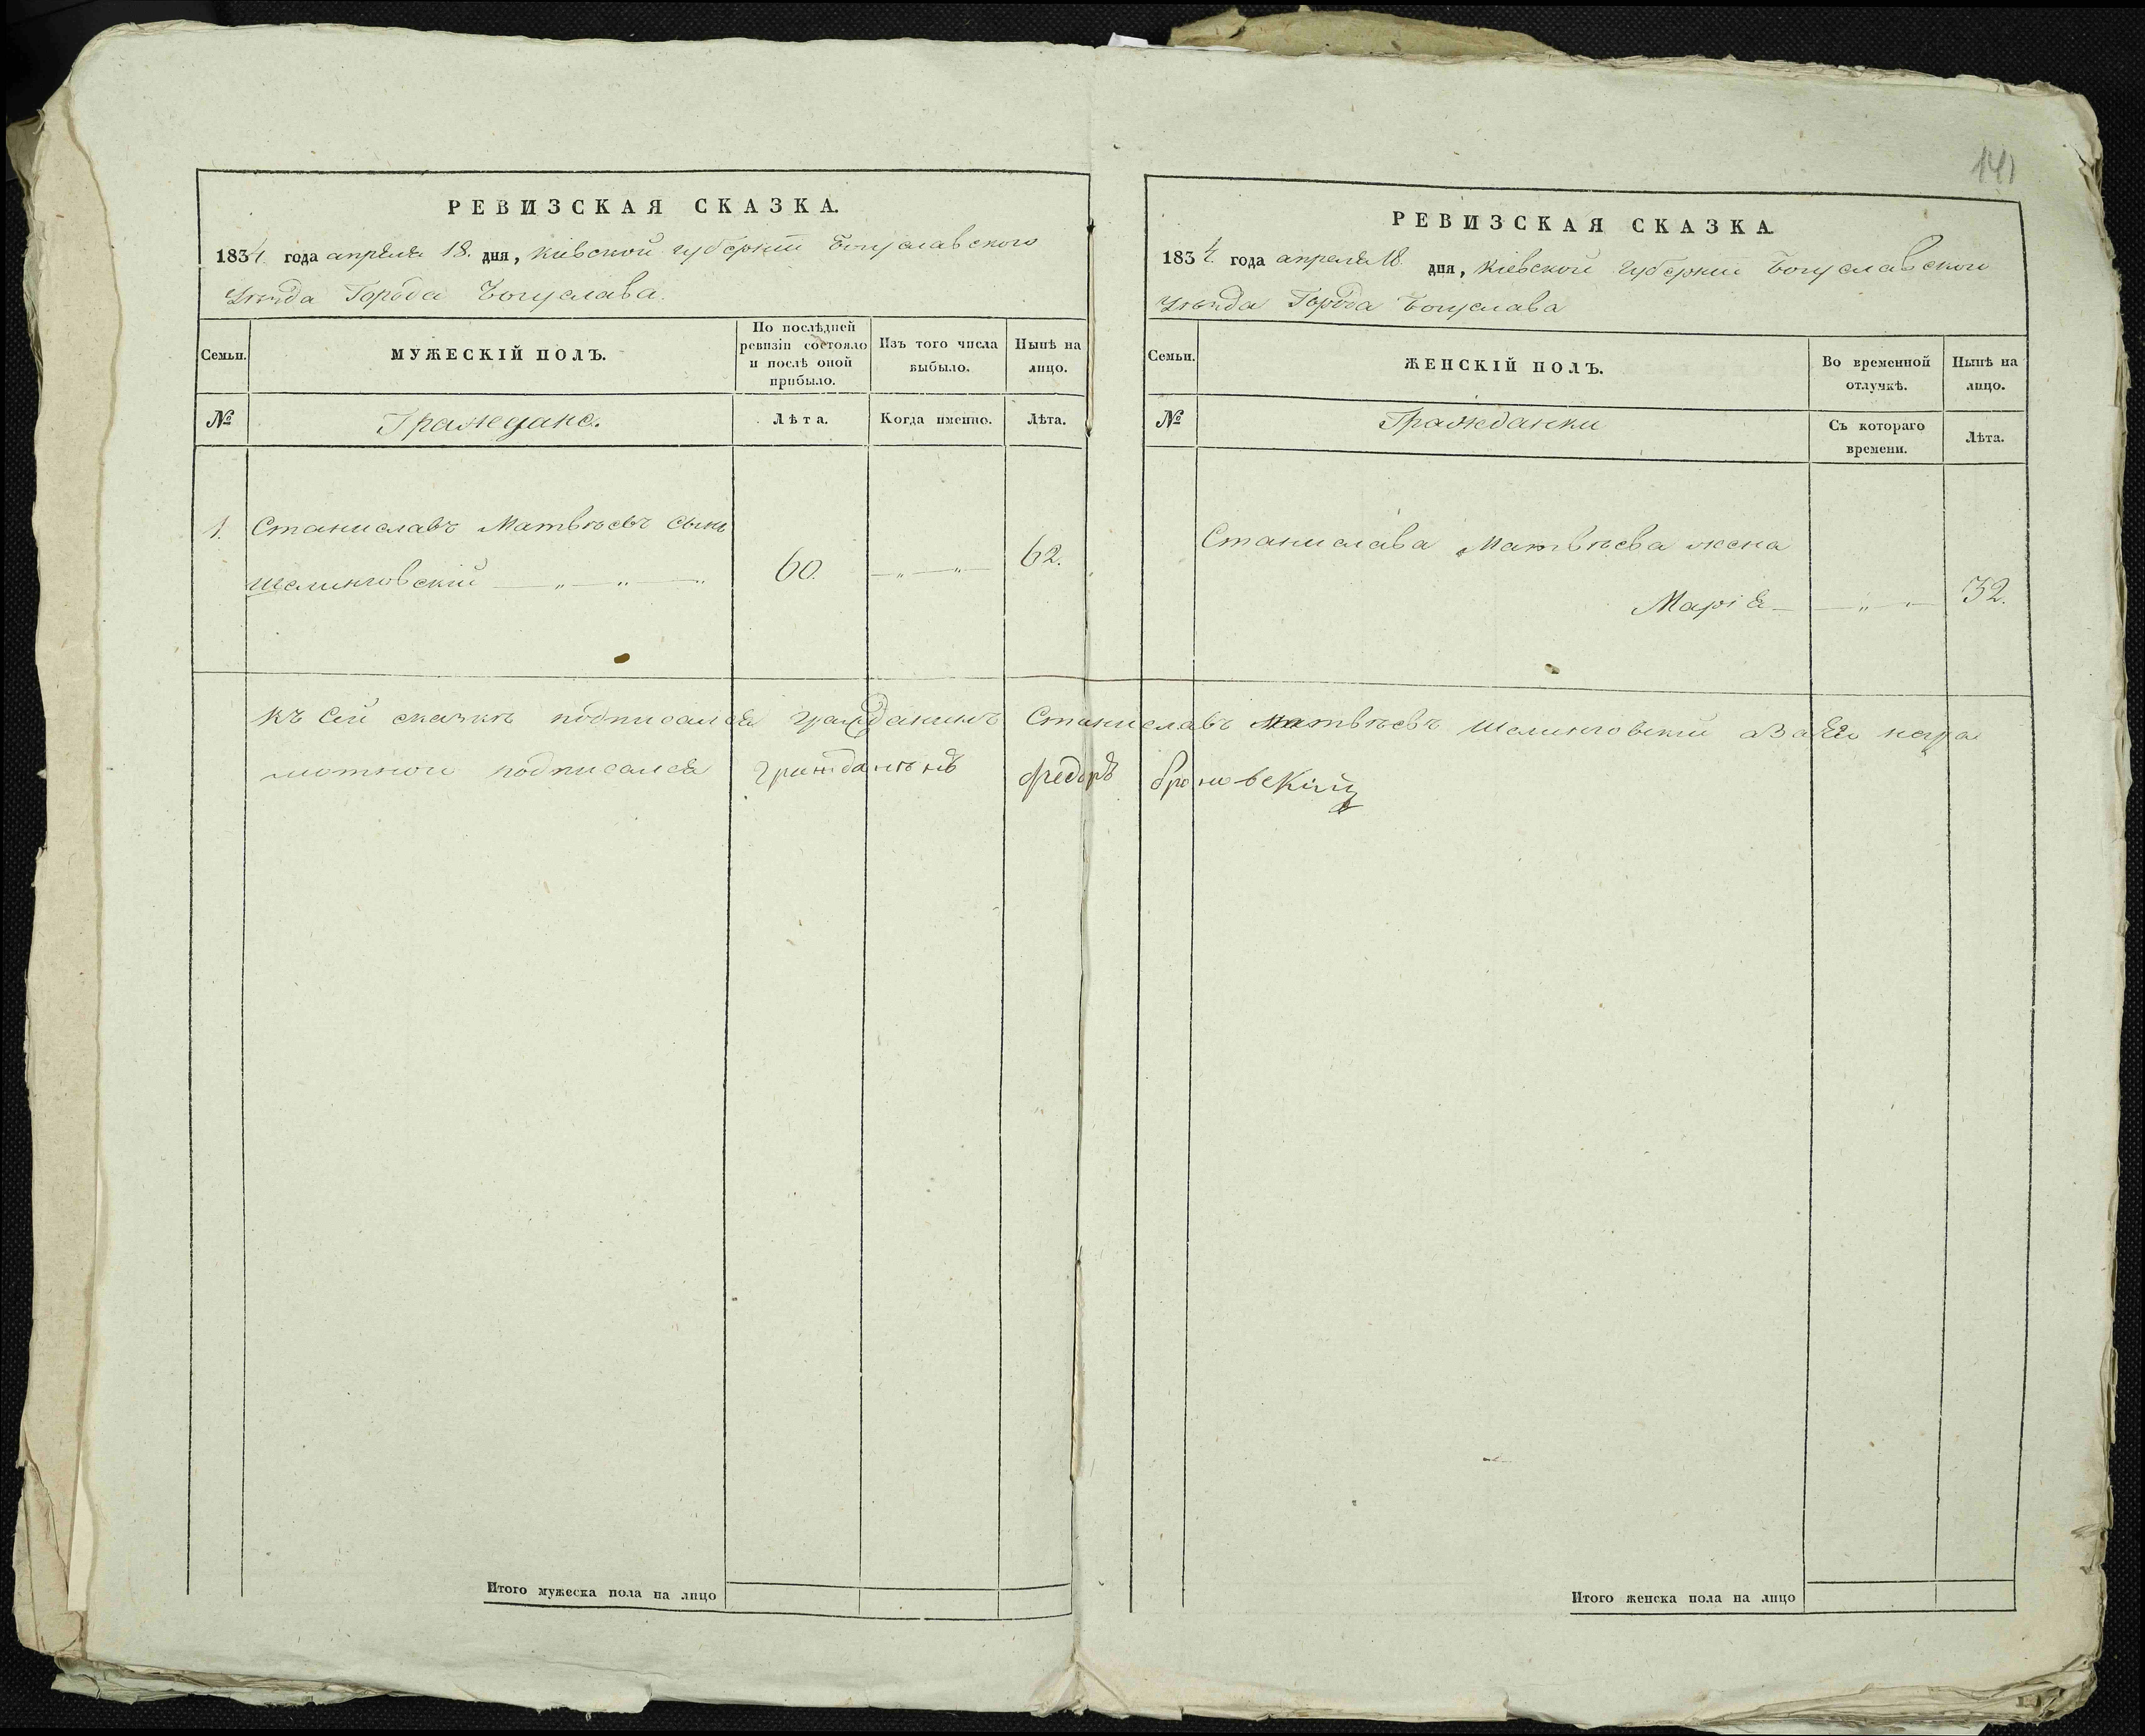 141
РЕВИЗСКАЯ СКАЗКА.
1834 года апреля 18. дня, Кіевской губерніи Богуславского
Уезда Города Богуслава.
Семьи.
МУЖЕСКІЙ ПОЛЪ.
По послѣдней ревизіи состояло и послѣ оной прибыло.
Изъ того числа выбыло.
Нынѣ на лицо.
№
Граждане.
Лѣта.
Когда именно.
Лѣта.
1. Станиславъ Матвѣевъ сынъ
Шелинговскій — „ — „ — „ 60. — „ — „ — 62.
РЕВИЗСКАЯ СКАЗКА
1834 года апреля 18. дня, Кіевской Губерніи Богуславского
Уезда Города Богуслава
Семьи.
ЖЕНСКІЙ ПОЛЪ.
Во временной отлучкѣ.
Нынѣ на лицо.
№
Гражданки
Съ котораго времени.
Лѣта.
Станислава Матвѣева жена
Марія — — „ — „ — 32.
Къ сей сказкѣ подписался гражданинъ Станиславъ Матвѣевъ Шелинговскій а За Его негра
мотного подписался гражданинъ Федоръ Броновскій
Итого мужеска пола на лицо
Итого женска пола на лицо